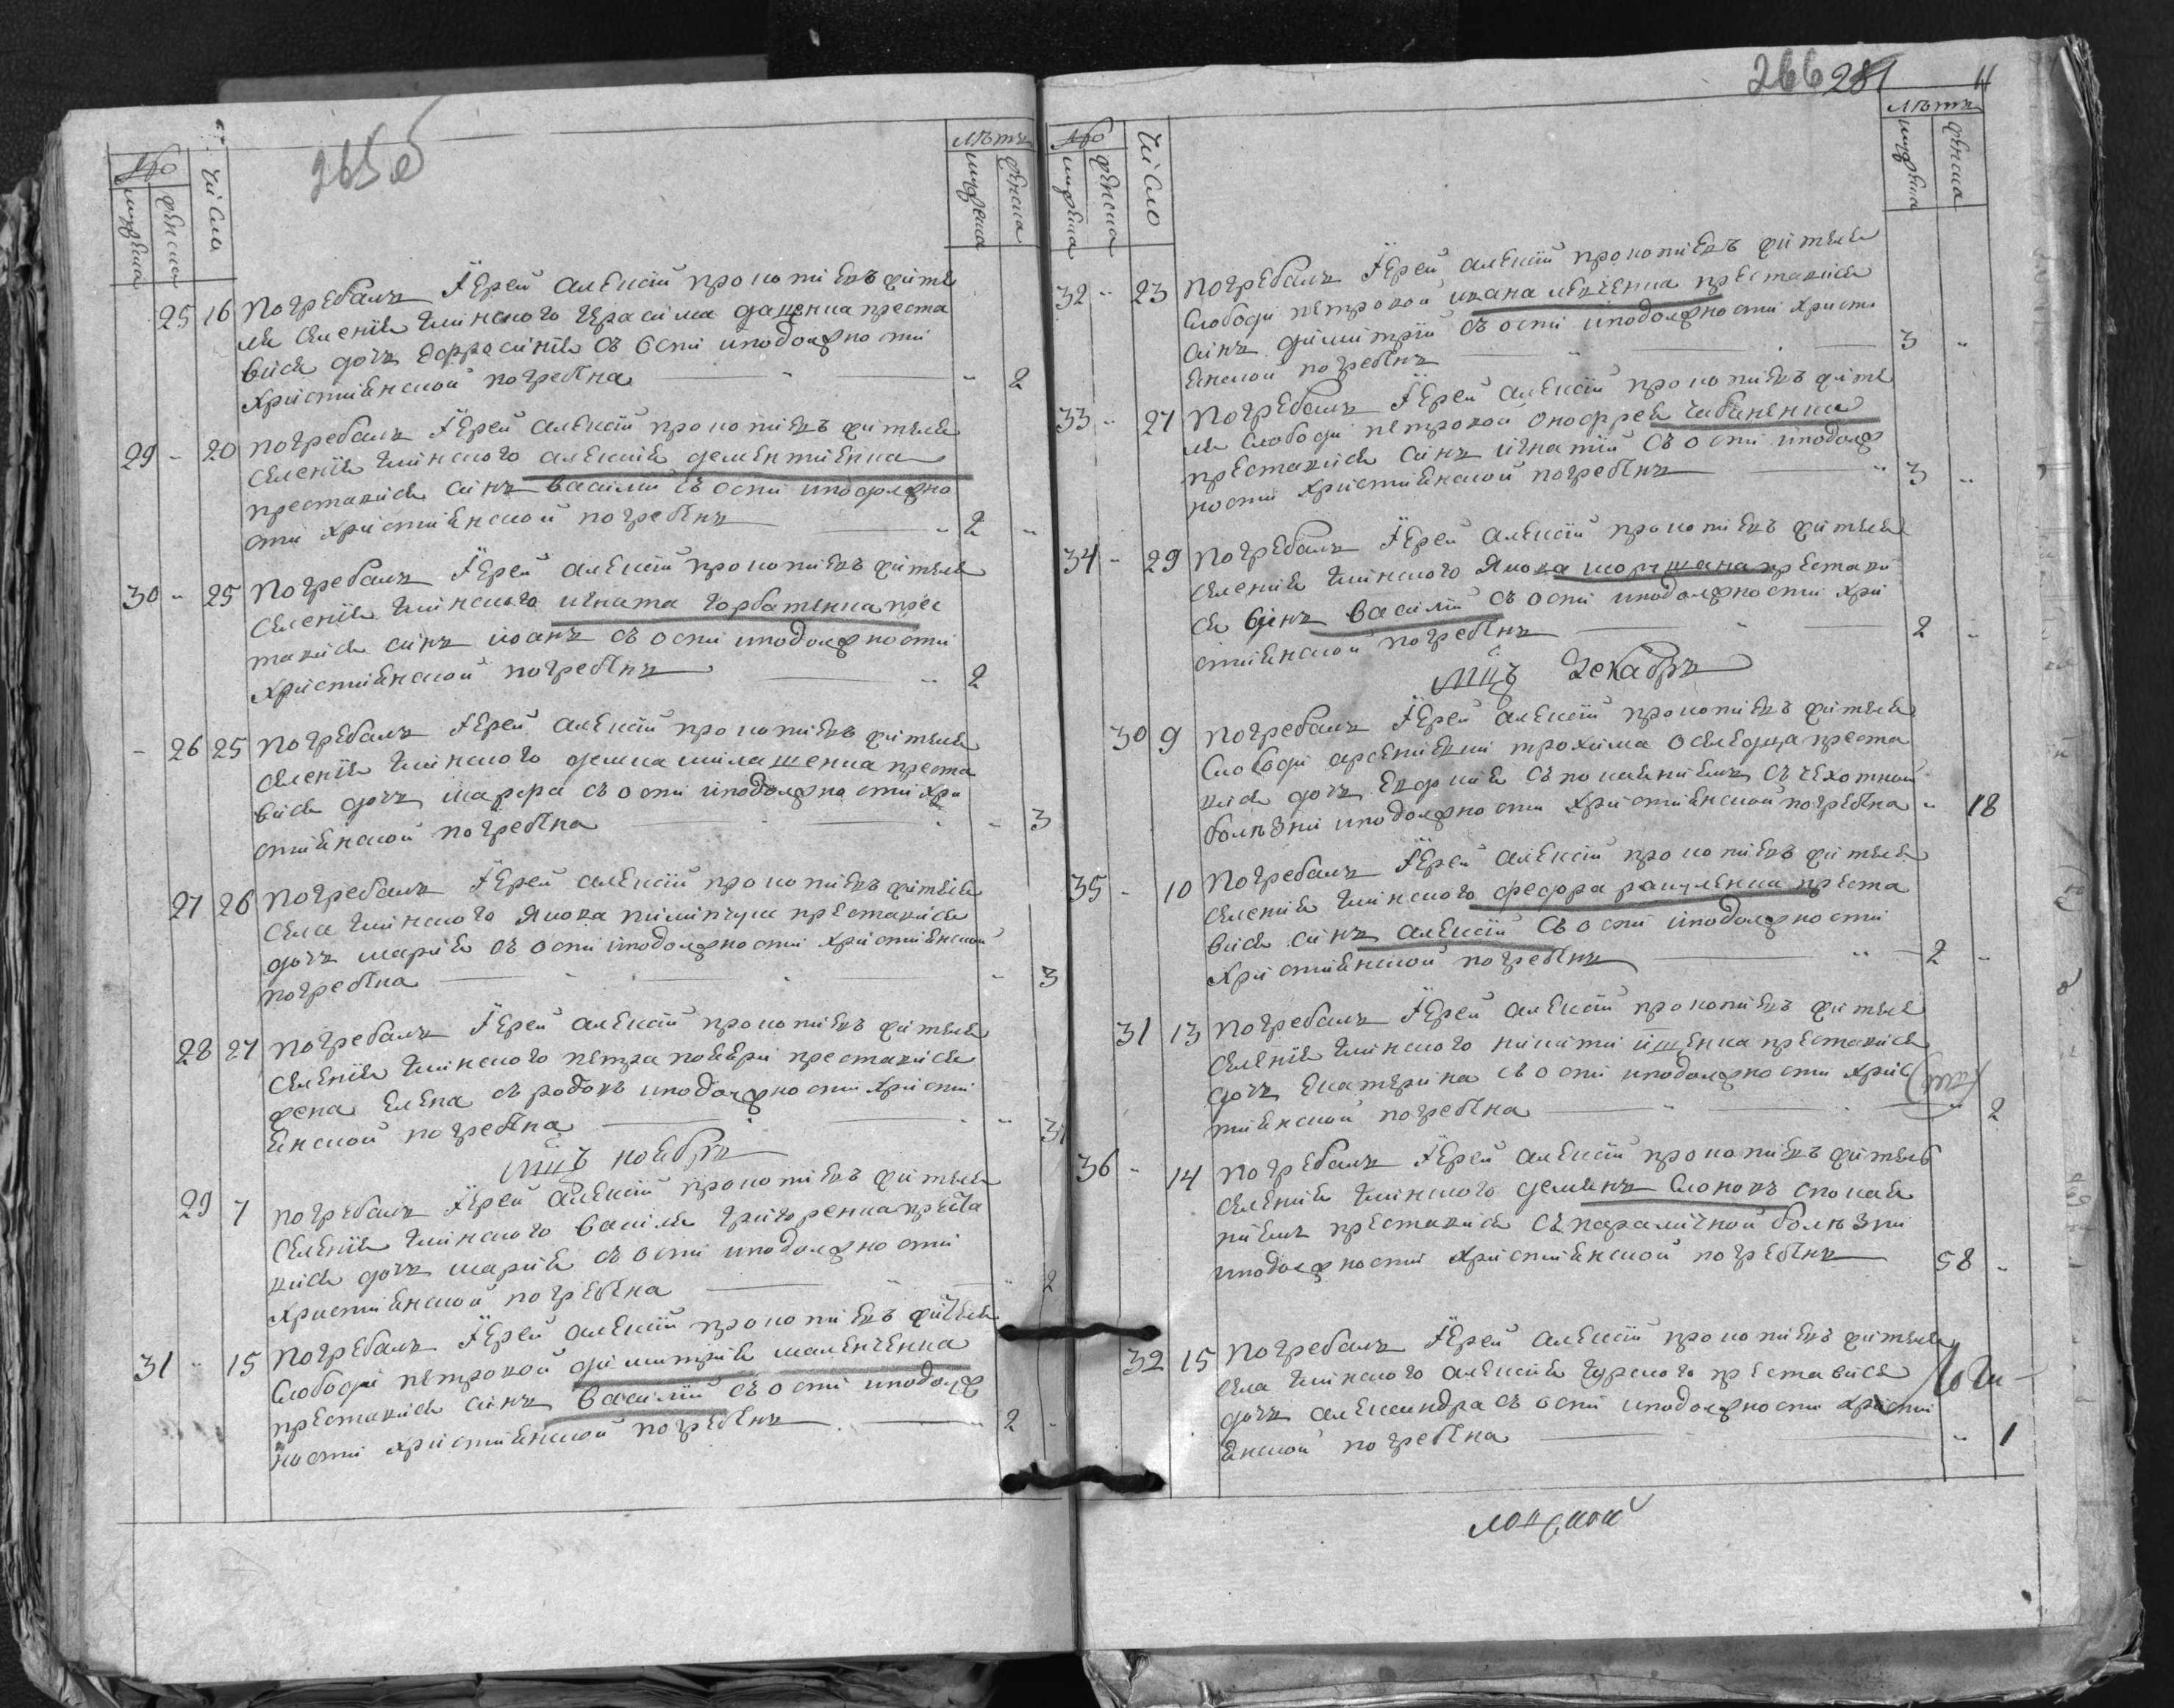 265 об
№ число лѣтъ
мужеска женска мужеска женска
25 16 Погребалъ Іерей Алексій прокопіевъ жите
ля селенія Глинского Герасима дащенка преста
вися дочъ Еофросинія съ оспи иподолжности
Христіянской погребена " 2
29 - 20 Погребалъ Іерей Алексій прокопіевъ жителя
селенія Глинского алексія дементіенка
преставися синъ василій съ оспи иподолжно
сти Христіянской погребенъ " 2 "
30 - 25 Погребалъ Іерей алексій прокопіевъ жителя
селенія Глинского игната Горбатенка прес
тавися синъ иоанъ съ оспи иподолжности
Христіянской погребенъ " 2
- 26 25 Погребалъ Іерей алексій прокопіевъ жителя
селенія Глинского демка милашенка преста
вися дочъ марфа съ оспи иподолжности Хри
стіянской погребена - 3
27 26 Погребалъ Іерей алексій прокопіевъ жителя
села Глинского Якова преставися
дочъ марія съ оспи иподолжности Христіянской
погребена - 3
28 27 Погребалъ Іерей алексій прокопіевъ жителя
селенія Глинского петра преставися
жена Елена съ родовъ иподолжности Христі
янской погребена "
мцъ ноябръ
29 7 Погребалъ Іерей алексій прокопіевъ жителя
селенія Глинского василя григоренка преста
вися дочъ марія съ оспи иподолжности
Христіянской погребена " 2
31 " 15 Погребалъ Іерей алексій прокопіевъ жителя
слободи петровой димитрія маленченка
преставися синъ василій съ оспи иподолж
ности Христіянской погребенъ 2 -
266 281 11
№ число лѣтъ
мужеска женска мужеска женска
32 " 23 Погребалъ Іерей алексій прокопіевъ жителя
слободи петровой ивана преставися
синъ димитрій съ оспи иподолжности Христи
янской погребенъ 3 "
33 " 27 Погребалъ Іерей алексій прокопіевъ жите
ля слободи петровой онофрея чабаненка
преставися синъ игнатій съ оспи иподолж
ности Христіянской погребенъ " 3 "
34 - 29 Погребалъ Іерей алексій прокопіевъ жителя
селенія Глинского Якова престави
ся синъ василій съ оспи иподолжности Хри
стіянской погребенъ 2 -
мцъ Декабръ
30 9 Погребалъ Іерей алексій прокопіевъ жителя
слободи трохима оселедца преста
вися дочъ съ покаяніемъ съ чехотной
болѣзни иподолжности Христіянской погребена " 18
35 - 10 Погребалъ Іерей алексій прокопіевъ жителя
селенія Глинского федора преста
вися синъ алексій съ оспи иподолжности
Христіянской погребенъ " 2 -
31 13 Погребалъ Іерей алексій прокопіевъ жителя
селенія Глинского никити ищенка преставися
дочъ Екатерина съ оспи иподолжности Хрис
тіянской погребена " 2
36 - 14 Погребалъ Іерей алексій прокопіевъ жителъ
селенія Глинского демянъ спокая
ніемъ преставися съ параличной болѣзни
иподолжности Христіянской погребенъ 58 -
32 15 Погребалъ Іерей алексій прокопіевъ жителя
села Глинского алексія Гурского преставися
дочъ александра съ оспи иподолжности Христі
янской погребена " 1